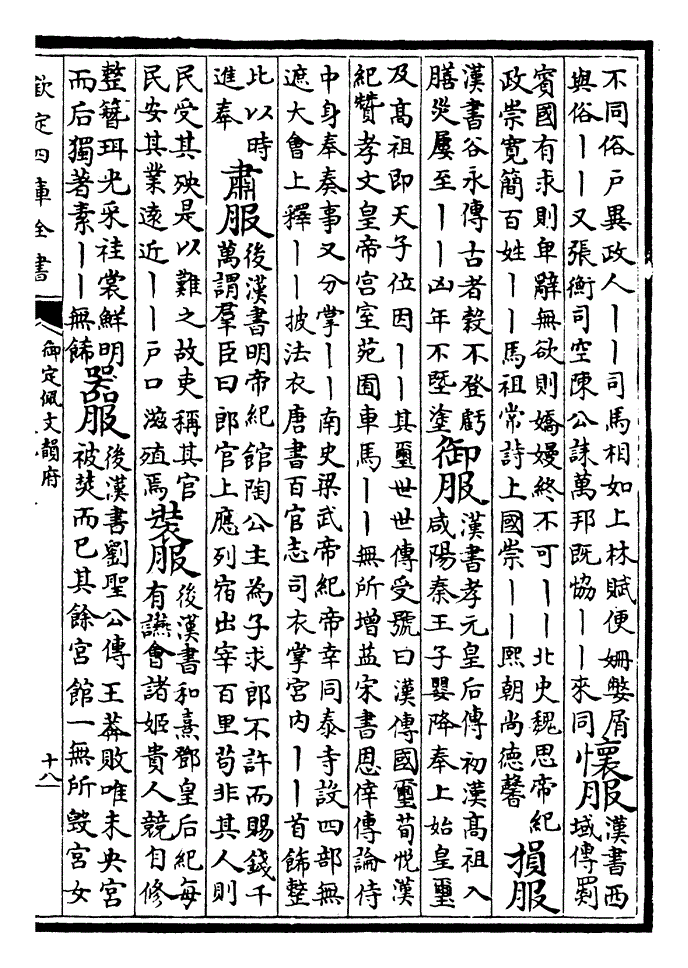 不同俗户異政人丨丨司馬相如上林賦便姍嫳屑
與俗丨丨又張衡司空陳公誄萬邦既協丨丨來同
懷服
漢書西
域傳罽
賓國有求則卑辭無欲則嬌嫚終不可丨丨北史魏思帝紀
政崇寛簡百姓丨丨馬祖常詩上國崇丨丨熙朝尚德馨
損服
漢書谷永傳古者穀不登虧
膳災屢至丨丨凶年不塈塗
御服
漢書孝元皇后傳初漢髙祖入
咸陽秦王子嬰降奉上始皇璽
及髙祖即天子位因丨丨其璽世世傳受號曰漢傳國璽荀悅漢
紀贊孝文皇帝宫室苑囿車馬丨丨無所增益宋書恩倖傳論侍
中身奉奏事又分掌丨丨南史梁武帝紀帝幸同泰寺設四部無
遮大會上釋丨丨披法衣唐書百官志司衣掌宮内丨丨首飾整
比以時
進奉
肅服
後漢書明帝紀館陶公主為子求郎不許而賜錢千
萬謂羣臣曰郎官上應列宿出宰百里苟非其人則
民受其殃是以難之故吏稱其官
民安其業遠近丨丨户口滋殖焉
裝服
後漢書和熹鄧皇后紀每
有讌會諸姬貴人競自修
整簪珥光采袿裳鮮明
而后獨著素丨丨無飾
器服
後漢書劉聖公傳王莽敗唯未央宮
被焚而已其餘宮館一無所毁宮女
欽定四庫全書
御定佩文韻府
十八